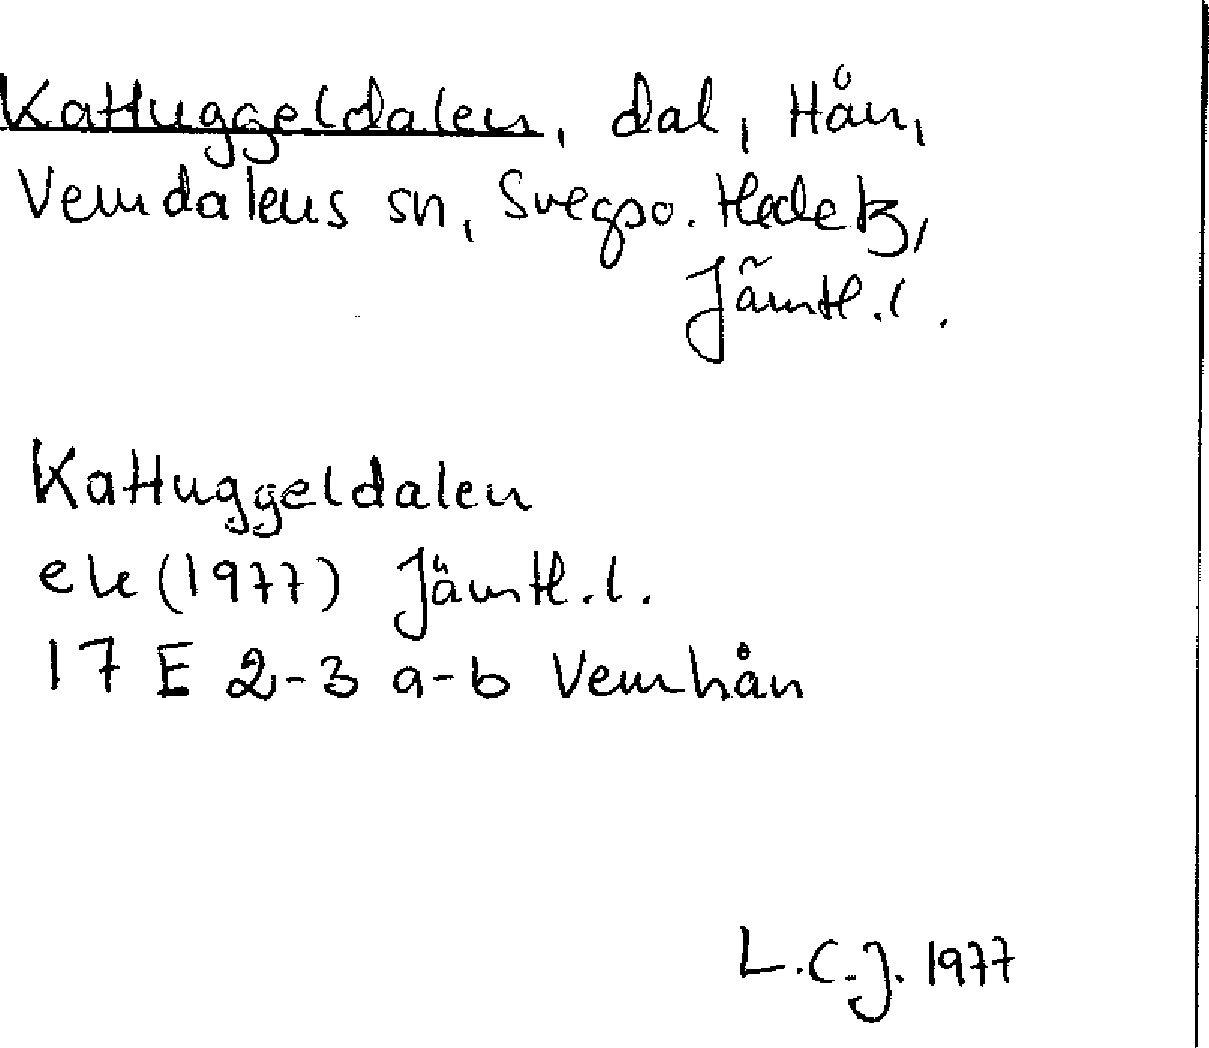 Kattuggeldalen, dal, Hån,
Vemdalens sn, Svegs po. Häde tz,
Jämtl. l.
Kattuggeldalen
ek (1977) Jämtl. l.
17 E 2-3 a-b Vemhån
L.C.J. 1977